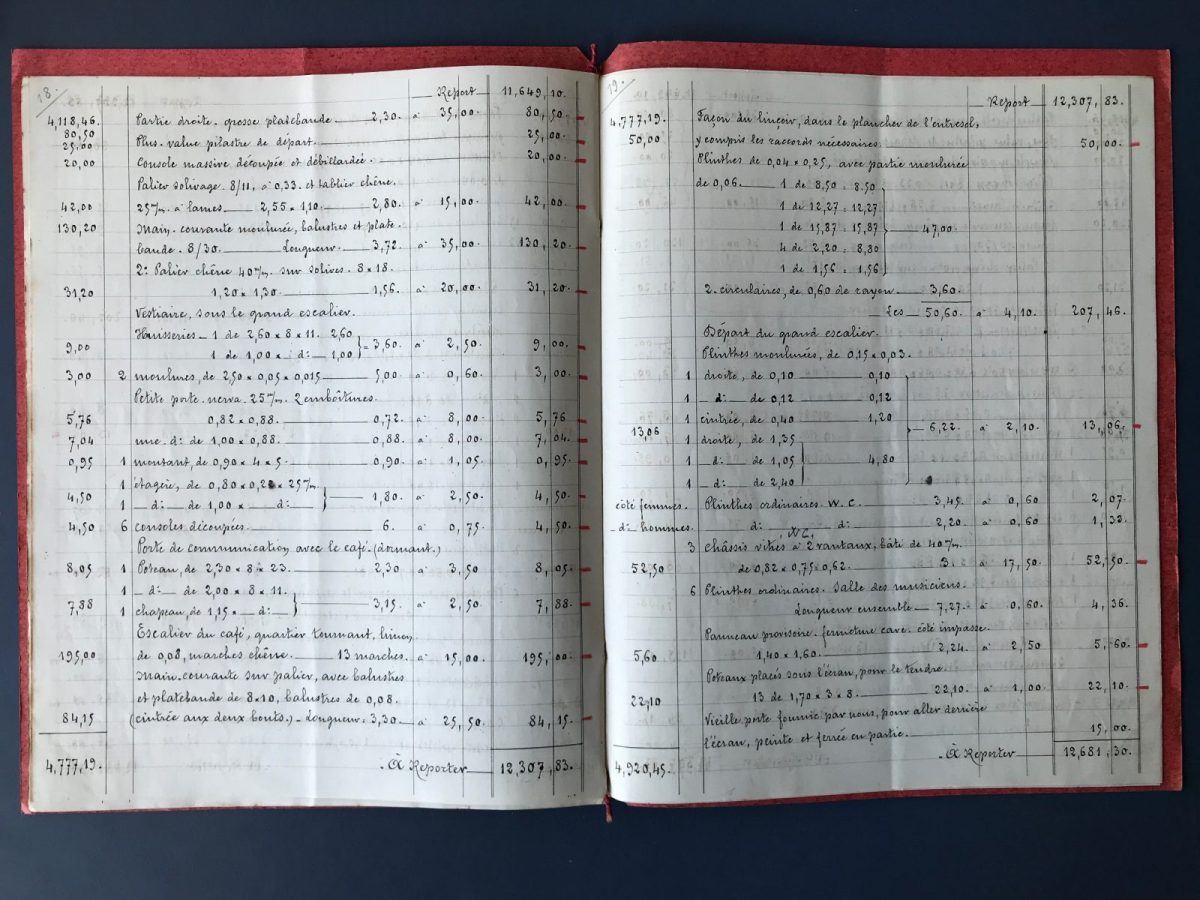 18.
Report 11,649,10.
4,118,46. Partie droite. grosse platebande 2,30. à 35,00. 80,50
80,50
25,00 Plus. value pilastre de départ. 25,00.
20,00 Console massive découpée et débillardée. 20,00.
Palier solivage. 8/11, à 0,33. et tablier chêne.
42,00 25m/m. à lames 2,55 x 1,10. 2,80. à 15,00. 42,00
130,20 Main. courante moulurée, balustres et plate
bande. 8/30. Longueur 3,72 à 35,00. 130,20.
2: Palier chêne 40m/m. sur solives. 8 x 18.
31,20 1,20 x 1,30. 1,56. à 20,00. 31,20
Vestiaire, sous le grand escalier.
Huisseries 1 de 2,60 x 8 x 11. 2,60
9,00 1 de 1,00 x d: 1,00 = 3,60. à 2,50. 9,00
3,00 2 moulures, de 2,50 x 0,05 x 0,015 5,00. à 0,60. 3,00
Petite porte. nerva. 25m/m. 2 emboîtures.
5,76 0,82 x 0,88. 0,72. à 8,00. 5,76
7,04 une. d: de 1,00 x 0,88. 0,88. à 8,00. 7,04.
0,95 1 montant, de 0,90 x 4 x 5. 0,90. à 1,05. 0,95
1 étagère, de 0,80 x 0,28 x 25m/m.
4,50 1 d: de 1,00 x d: 1,80. à 2,50. 4,50
4,50 6 consoles découpées. 6. à 0,75. 4,50
Porte de communication avec le café. (dormant.)
8,05 1 Poteau, de 2,30 x 8 x 23. 2,30 à 3,50 8,05.
1 d: de 2,00 x 8 x 11.
7,88 1 chapeau, de 1,15 x d: 3,15. à 2,50. 7,88
Escalier du café, quartier tournant, limon,
195,00 de 0,08, marches chêne. 13 marches. à 15,00. 195,00.
Main. courante sur palier, avec balustres
et platebande de 8 x 10, balustres de 0,08.
84,15 (cintrée aux deux bouts.) Longueur. 3,30. à 25,50. 84,15.
4,777,19. À Reporter 12,307,83.
19.
Report 12,307,83.
4,777,19. Façon du linçoir, dans le plancher de l'entresol,
50,00 y compris les raccords nécessaires. 50,00.
Plinthes de 0,04 x 0,25, avec partie moulurée
de 0,06. 1 de 8,50 = 8,50
1 de 12,27 = 12,27
1 de 15,87 = 15,87 47,00
4 de 2,20 = 8,80
1 de 1,56 = 1,56
2. circulaires, de 0,60 de rayon 3,60.
Les 50,60. à 4,10. 207,46.
Départ du grand escalier.
Plinthes moulurées, de 0,15 x 0,03.
1 droite, de 0,10 0,10
1 d: de 0,12 0,12
1 cintrée, de 0,40 1,20
13,06 6,22. à 2,10. 13,06.
1 droite, de 1,35
1 d: de 1,05 4,80
1 d: de 2,40
côté femmes. Plinthes ordinaires. W. C. 3,45. à 0,60 2,07
d: hommes. d: W.C. d: 2,20. à 0,60 1,33.
3 châssis vitrés à 2 vantaux, bâti de 40m/m.
52,50 de 0,82 x 0,75 x 0,62. 3. à 17,50. 52,50
6 Plinthes ordinaires. Salle des musiciens.
Longueur ensemble 7,27. à 0,60. 4,36
Panneau provisoire. fermeture cave. côté impasse.
5,60 1,40 x 1,60. 2,24. à 2,50 5,60
Poteaux placés sous l'écran, pour le tendre.
22,10 13 de 1,70 x 3 x 8. 22,10. à 1,00. 22,10
Vieille porte fournie par nous, pour aller derrière
l'écran, peinte et ferrée en partie. 15,00.
4,920,45. À Reporter 12,681,30.